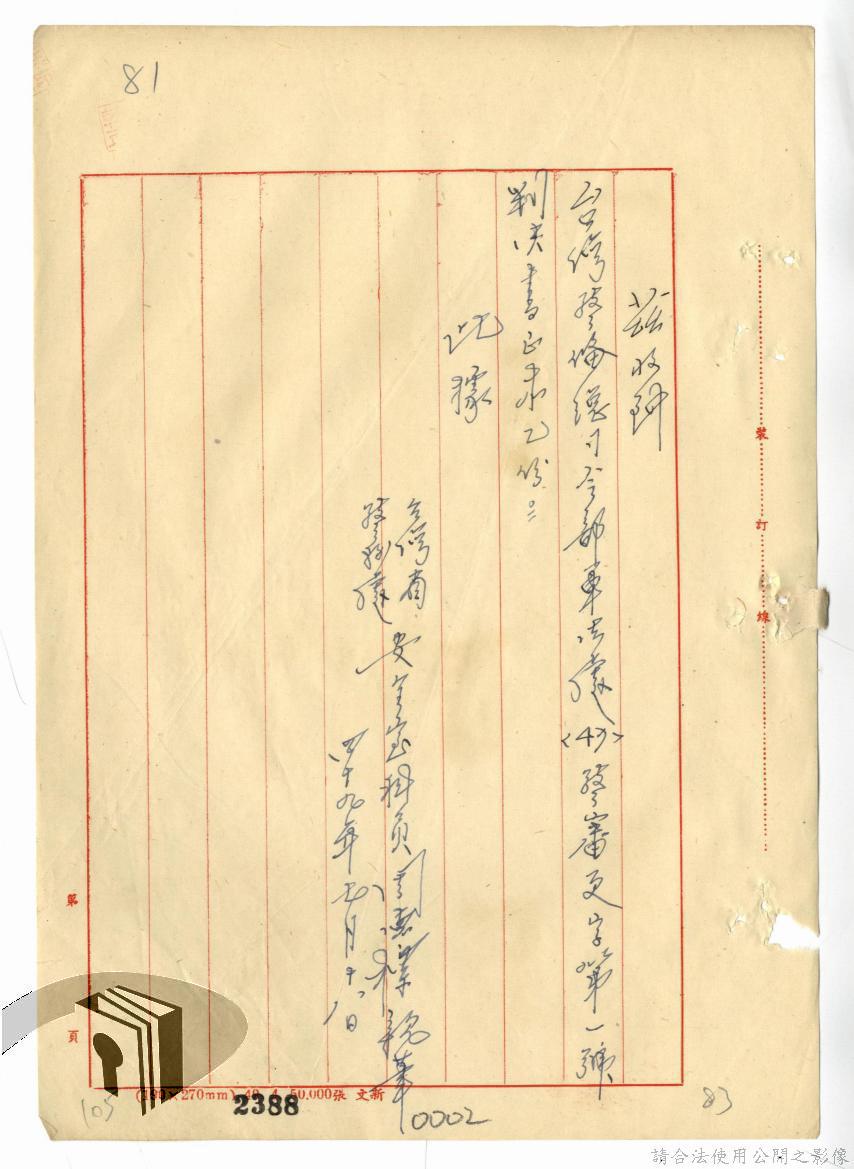 81
茲收到
台灣警備總司令部軍法處〈49〉警審更字第一號
判決書正本乙份。
此據
台灣省
警務處
安全室科員
四十九年七月十八日
裝
訂
線
第
頁
(190×270mm) 49. 4. 50,000張 文新
2388
0002
105
83
請合法使用公開之影像